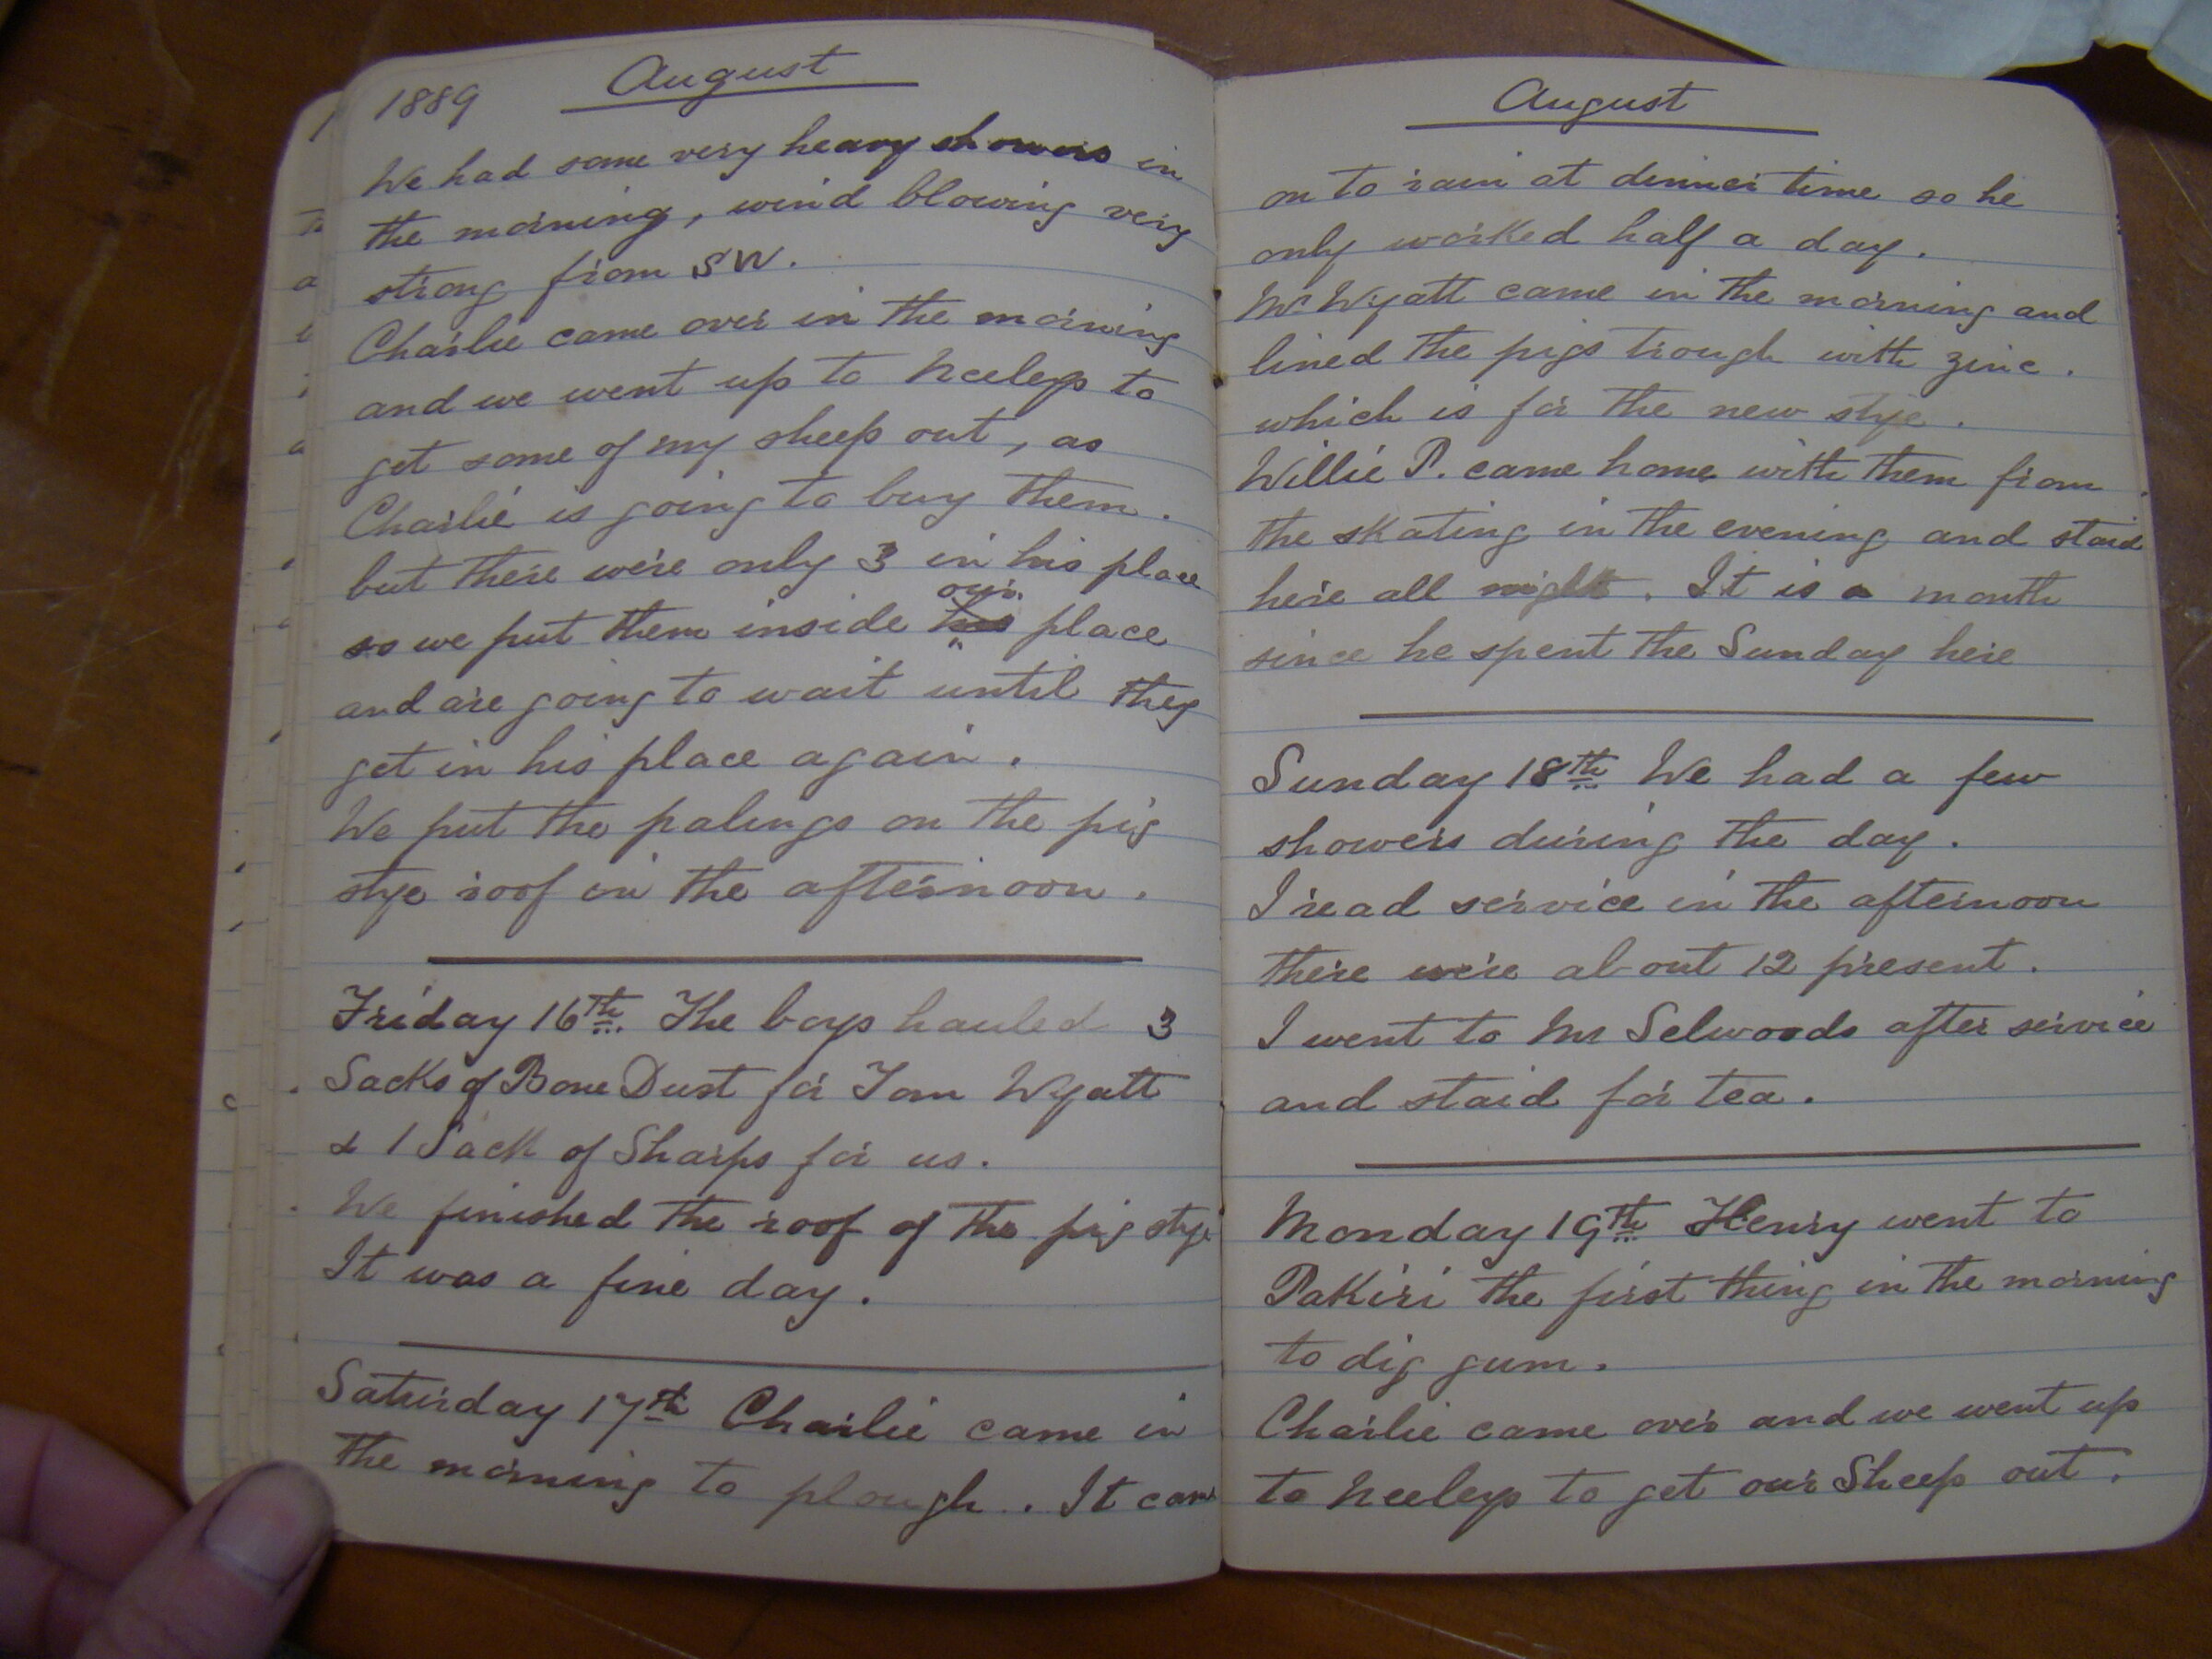 1889 August
We had some very heavy showers in
the morning, wind blowing very
strong from SW.
Charlie came over in the morning
and we went up to Neeleys to
get some of my sheep out, as
Charlie is going to buy them.
but there were only 3 in his place
our
so we put them inside his place
and are going to wait until they
get in his place again.
We put the palings on the pig
stye roof in the afternoon.
Friday 16th The boys hauled 3
Sacks of Bone Dust for Tom Wyatt
& 1 Sack of Sharps for us.
We finished the roof of the pig stye
It was a fine day.
Saturday 17th Charlie came in
the morning to plough. It came
August
on to rain at dinner time so he
only worked half a day.
Mr Wyatt came in the morning and
lined the pigs trough with zinc.
which is for the new stye.
Willie P. came home with them from
the skating in the evening and staid
here all night. It is a month
since he spent the Sunday here
Sunday 18th We had a few
showers during the day.
I read service in the afternoon
there were about 12 present.
I went to Mr Selwoods after service
and staid for tea.
Monday 19th Henry went to
Pakiri the first thing in the morning
to dig gum.
Charlie came over and we went up
to Neeleys to get our Sheep out.